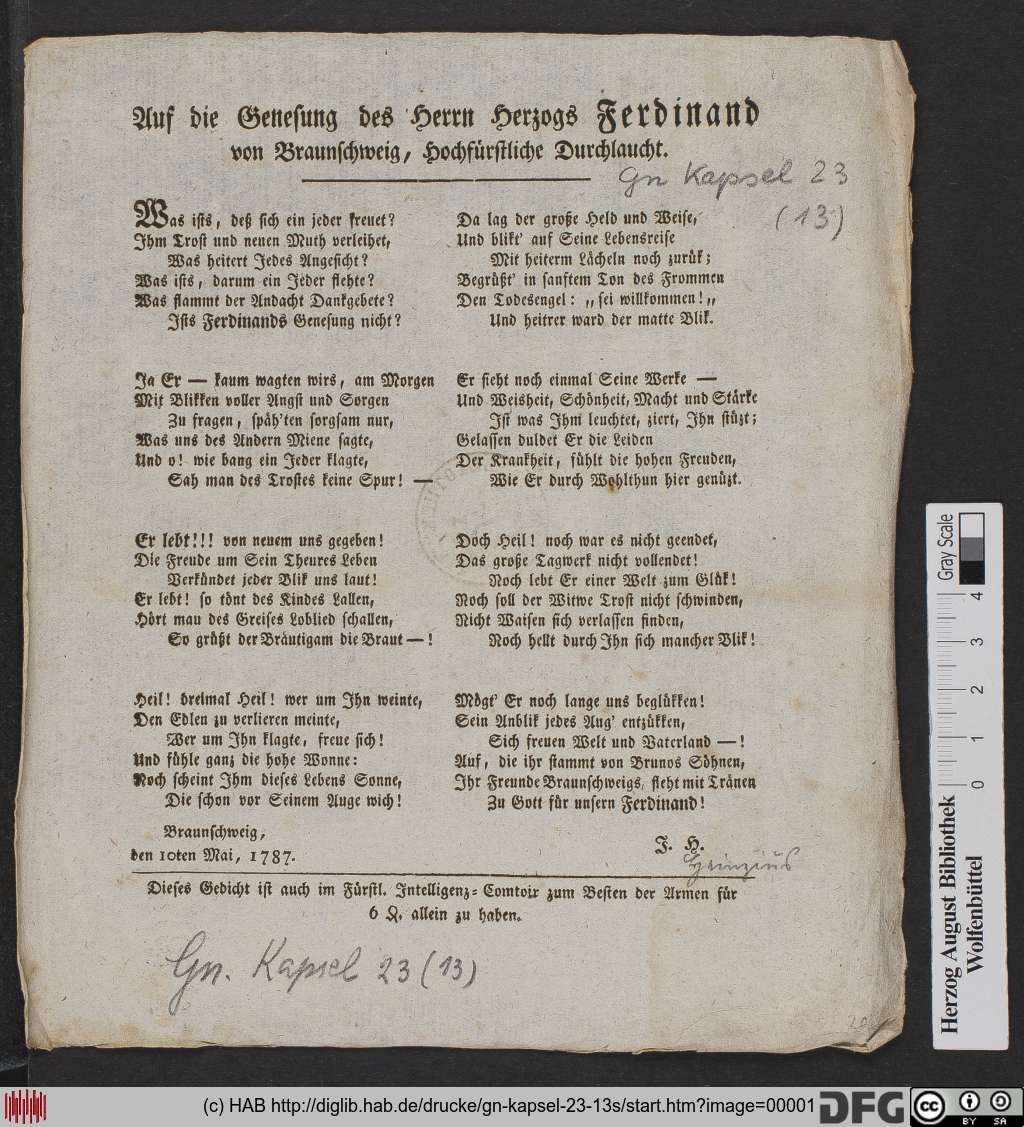 Auf die Geneſung des Herrn Herzogs Ferdinand
von Braunſchweig, Hochfürſtliche Durchlaucht.
Gn Kapsel 23
(13)
Was iſts, deß ſich ein jeder freuet?
Ihm Troſt und neuen Muth verleihet,
Was heitert Jedes Angeſicht?
Was iſts, darum ein Jeder flehte?
Was flammt der Andacht Dankgebete?
Iſts Ferdinands Geneſung nicht?
Ja Er — kaum wagten wirs, am Morgen
Mit Blikken voller Angſt und Sorgen
Zu fragen, ſpäh'ten ſorgſam nur,
Was uns des Andern Miene ſagte,
Und o! wie bang ein Jeder klagte,
Sah man des Troſtes keine Spur! —
Er lebt!!! von neuem uns gegeben!
Die Freude um Sein Theures Leben
Verkündet jeder Blik uns laut!
Er lebt! ſo tönt des Kindes Lallen,
Hört man des Greiſes Loblied ſchallen,
So grüßt der Bräutigam die Braut — !
Heil! dreimal Heil! wer um Ihn weinte,
Den Edlen zu verlieren meinte,
Wer um Ihn klagte, freue ſich!
Und fühle ganz die hohe Wonne:
Noch ſcheint Ihm dieſes Lebens Sonne,
Die ſchon vor Seinem Auge wich!
Da lag der große Held und Weiſe,
Und blikt' auf Seine Lebensreiſe
Mit heiterm Lächeln noch zurük;
Begrüßt' in ſanftem Ton des Frommen
Den Todesengel: „ſei willkommen!„
Und heitrer ward der matte Blik.
Er ſieht noch einmal Seine Werke —
Und Weisheit, Schönheit, Macht und Stärke
Iſt was Ihm leuchtet, ziert, Ihn ſtüzt;
Gelaſſen duldet Er die Leiden
Der Krankheit, fühlt die hohen Freuden,
Wie Er durch Wohlthun hier genüzt.
Doch Heil! noch war es nicht geendet,
Das große Tagwerk nicht vollendet!
Noch lebt Er einer Welt zum Glük!
Noch ſoll der Witwe Troſt nicht ſchwinden,
Nicht Waiſen ſich verlaſſen finden,
Noch hellt durch Ihn ſich mancher Blik!
Mögt' Er noch lange uns beglükken!
Sein Anblik jedes Aug' entzükken,
Sich freuen Welt und Vaterland — !
Auf, die ihr ſtammt von Brunos Söhnen,
Ihr Freunde Braunſchweigs, fleht mit Tränen
Zu Gott für unſern Ferdinand!
Braunſchweig,
den 10ten Mai, 1787.
J. H.
Heinzius
Dieſes Gedicht iſt auch im Fürſtl. Intelligenz-Comtoir zum Beſten der Armen für
6 ₰. allein zu haben.
Gn. Kapsel 23 (13)
Gray Scale
0 1 2 3 4
Herzog August Bibliothek
Wolfenbüttel
(c) HAB http://diglib.hab.de/drucke/gn-kapsel-23-13s/start.htm?image=00001
DFG
cc BY SA